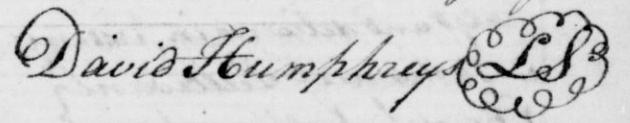 David Humphreys LS